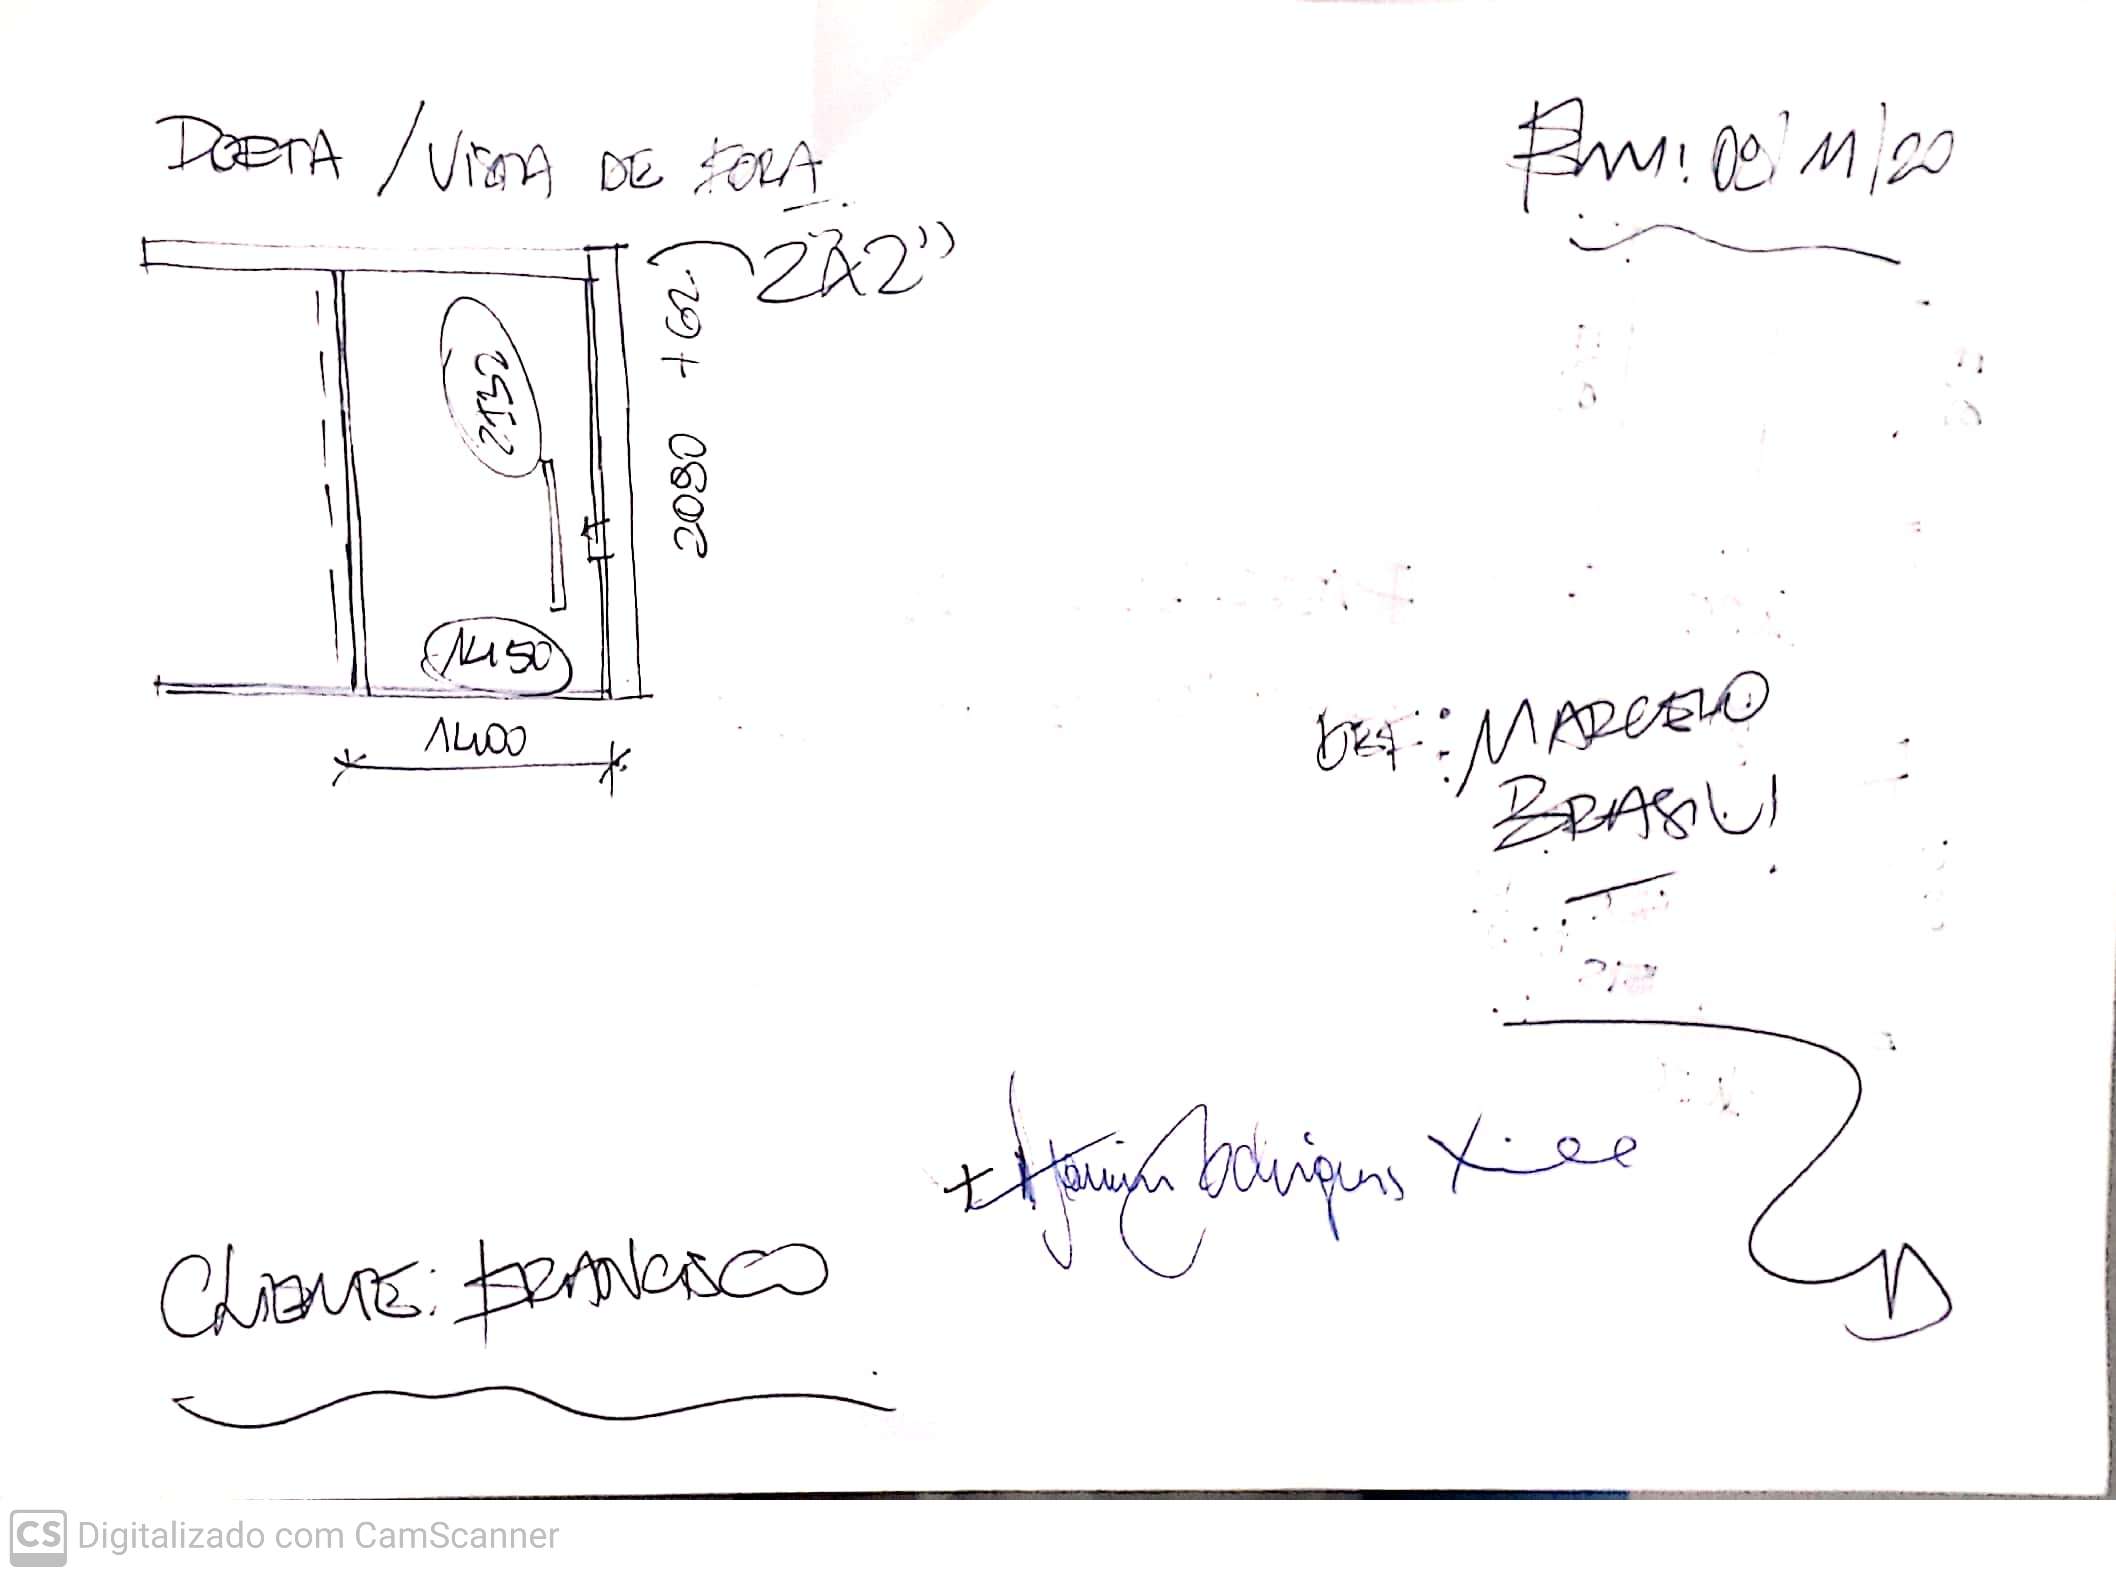 PORTA / VISTA DE FORA
Em: 09/11/20
2À2"
2080 +62
2132
1450
1400
REF: MARCELO
BRASIL
Rodrigues
CLIENTE: FRANCISCO
CS Digitalizado com CamScanner